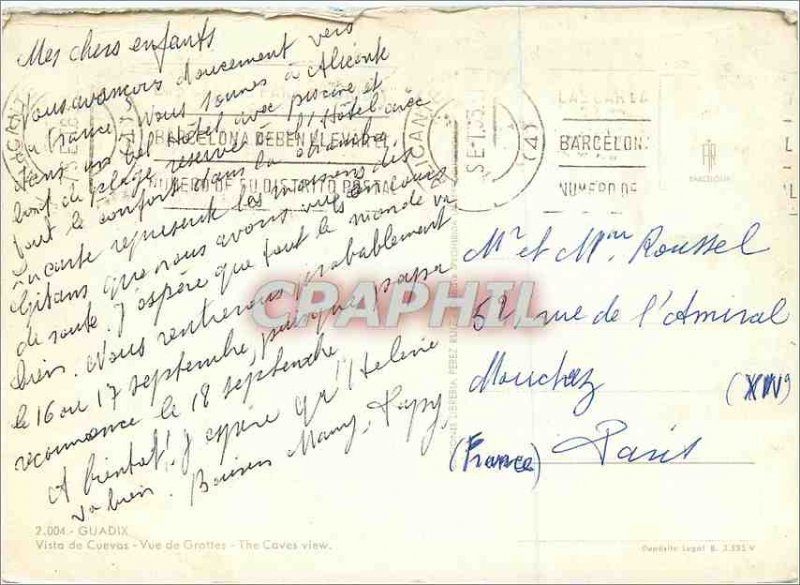 Mes chers enfants
Nous avançons doucement vers
la France. Nous sommes à Alicante
dans un bel Hôtel avec piscine et
bout de plage réservé à l'Hôtel avec
tout le confort dans la chambre.
La carte représente les maisons des
Gitans que nous avons vues en cours
de route. J'espère que tout le monde va
bien. Nous rentrerons probablement
le 16 ou 17 septembre, puisque papa
recommence le 18 septembre
A bientôt! J'espère qu'Helene
va bien. Baisers Mamy, Papy,
2.004 - GUADIX
Vista de Cuevas - Vue de Grottes - The Caves view.
BARCELONA DEBEN LLEVAR EL
NUMERO DE SU DISTRITO POSTAL
ALICANTE
(4)
LAS CARTA
BARCELON
NUMERO DE
BARCELONA
Mr et Mme Roussel
52, rue de l'Amiral
Mouchez
(XIV)
(France) Paris
LIBRERIA PEREZ RUIZ
Depósito Legal B. 3.595 V
CPAPHIL